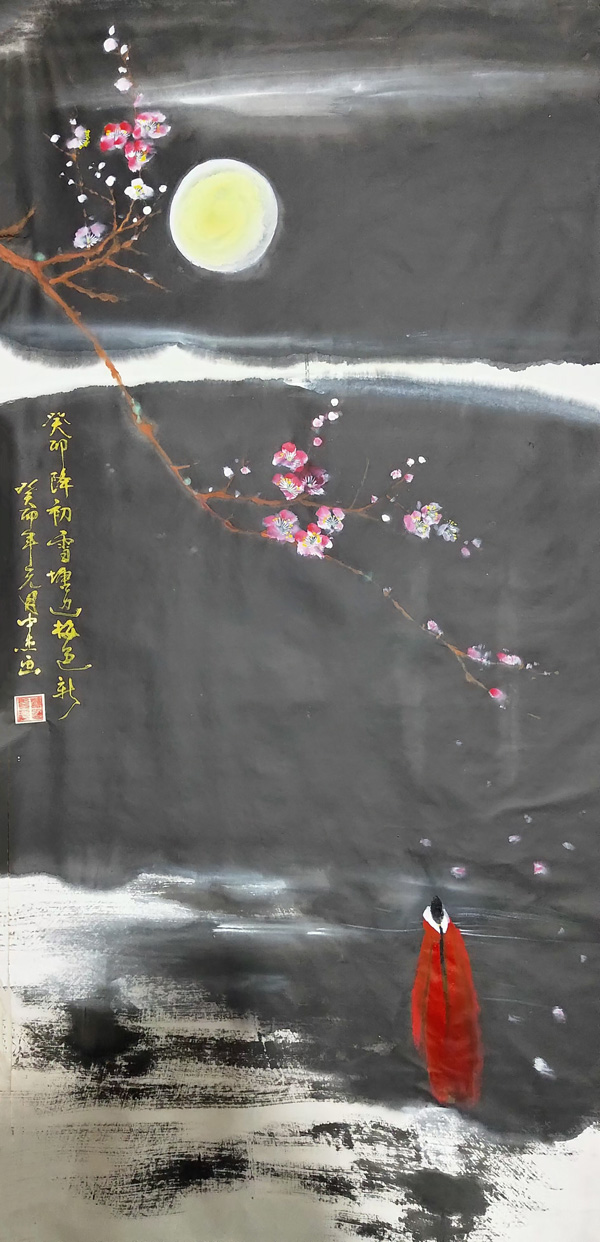 癸卯降初雪塘边梅逢新
癸卯年元月中杰画